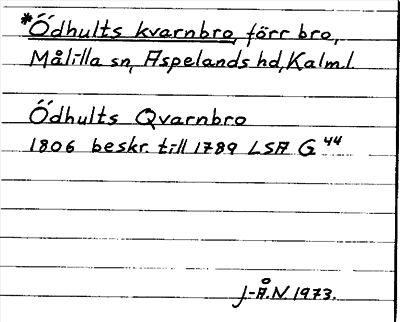 *Ödhults kvarnbro, förr bro,
Målilla sn, Aspelands hd, Kalm.l.
Ödhults Qvarnbro
1806 beskr. till 1789 LSA G 44
J.-Å.N. 1973.